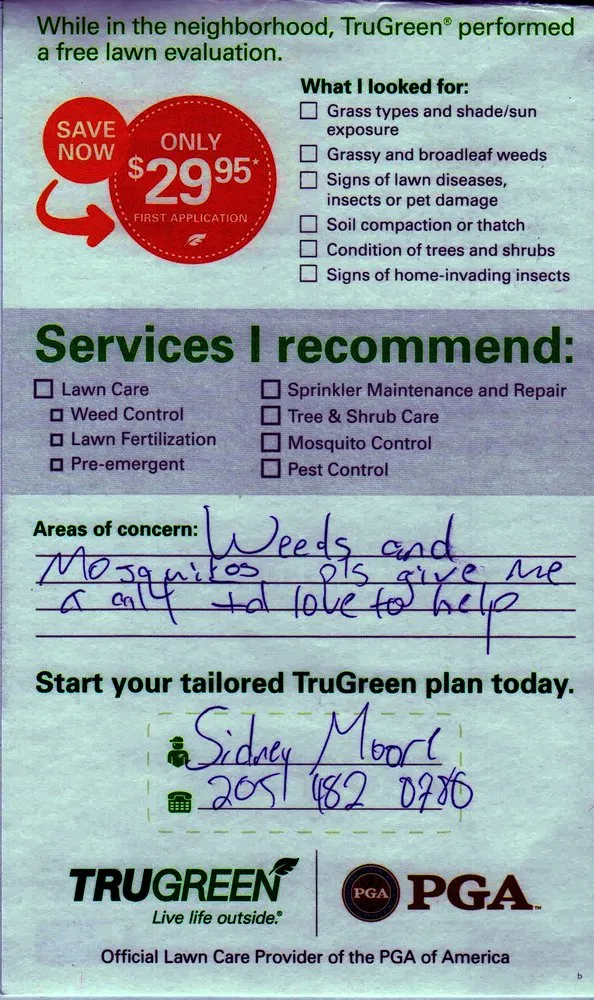 While in the neighborhood, TruGreen® performed
a free lawn evaluation.
SAVE
NOW
ONLY
$29 95*
FIRST APPLICATION
What I looked for:
Grass types and shade/sun
exposure
Grassy and broadleaf weeds
Signs of lawn diseases,
insects or pet damage
Soil compaction or thatch
Condition of trees and shrubs
Signs of home-invading insects
Services I recommend:
Lawn Care
Weed Control
Lawn Fertilization
Pre-emergent
Sprinkler Maintenance and Repair
Tree & Shrub Care
Mosquito Control
Pest Control
Areas of concern: Weeds and
Mosquitos pls give me
a call I'd love to help
Start your tailored TruGreen plan today.
Sidney Moore
205 482 0786
TRUGREEN
Live life outside.®
PGA
PGA™
Official Lawn Care Provider of the PGA of America
b